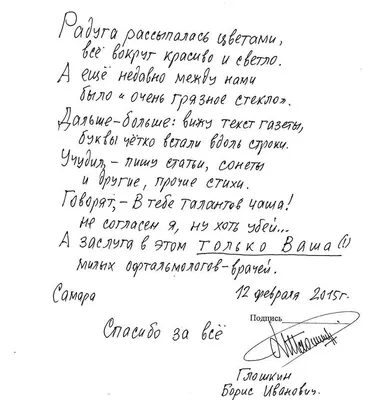 Радуга рассыпалась цветами,
всё вокруг красиво и светло.
А ещё недавно между нами
было „очень грязное стекло".
Дальше-больше: вижу текст газеты,
буквы чётко встали вдоль строки.
Учудил, – пишу статьи, сонеты
и другие, прочие стихи.
Говорят, – В тебе талантов чаша!
Не согласен я, ну хоть убей...
А заслуга в этом только Ваша (!)
милых офтальмологов-врачей.
Самара 12 февраля 2015г.
Подпись
Спасибо за всё
Глошкин
Борис Иванович.